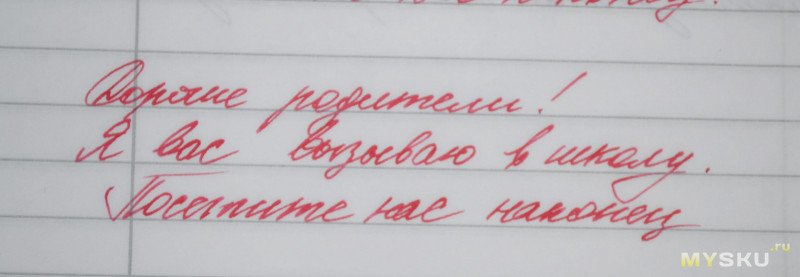 Дорогие родители!
Я вас вызываю в школу.
Посетите нас наконец
MYSKU.ru